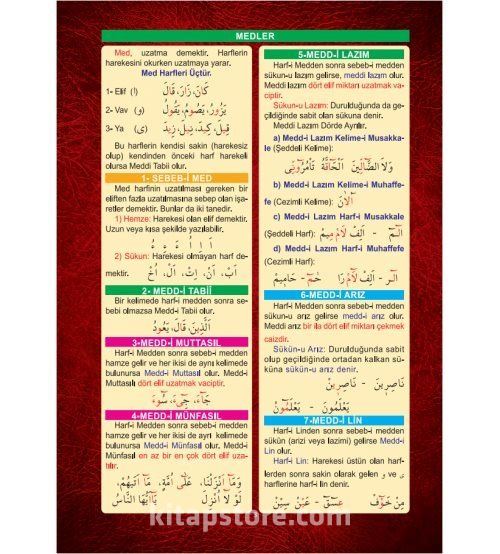 MEDLER
Med, uzatma demektir. Harflerin
harekesini okurken uzatmaya yarar.
Med Harfleri Üçtür.
1- Elif (ا) كَانَ، زَارَ، قَالَ
2- Vav (و) يَزُورُ، يَصُومُ، يَقُولُ
3- Ya (ى) قِيلَ، كِيدَ، نِيلَ، زِيدَ
Bu harflerin kendisi sakin (harekesiz
olup) kendinden önceki harf harekeli
olursa Meddi Tabii olur.
1- SEBEB-İ MED
Med harfinin uzatılması gereken bir
eliften fazla uzatılmasına sebep olan işa-
retler demektir. Bunlar da iki tanedir.
1) Hemze: Harekesi olan elif demektir.
Uzun veya kısa şekilde yazılabilir.
2) Sükun: Harekesi olmayan harf de-
mektir. اَبْ، اَنْ، اِتْ، اَلْ، اُخْ
2- MEDD-İ TABİİ
Bir kelimede harf-i medden sonra se-
bebi olmazsa Medd-i Tabii olur.
اَلَّذِينَ، قَالَ، يَعُودُ
3-MEDD-İ MUTTASIL
Harf-i Medden sonra sebeb-i medden
hamze gelir ve her ikisi de aynı kelimede
bulunursa Medd-i Muttasıl olur. Medd-i
Muttasılı dört elif uzatmak vaciptir.
جَاءَ، جِيءَ، سُوءَ
4-MEDD-İ MÜNFASIL
Harf-i Medden sonra sebeb-i medden
hamze gelir ve her ikisi de ayrı kelimede
bulunursa Medd-i Münfasıl olur. Medd-i
Münfasılı en az bir en çok dört elif uza-
tılır.
وَمَا اَنْزَلْنَا، عَلَى اُمَّةٍ، مَا اٰتٰيهُمْ،
لَوْلَا اُنْزِلَ يَا اَيُّهَا النَّاسُ
5-MEDD-İ LAZIM
Harf-i Medden sonra sebeb-i medden
sükun-u lazım gelirse, meddi lazım olur.
Meddi lazımı dört elif miktarı uzatmak va-
ciptir.
Sükun-u Lazım: Durulduğunda da ge-
çildiğinde sabit olan sükuna denir.
Meddi Lazım Dörde Ayrılır.
a) Medd-i Lazım Kelime-i Musakka-
le (Şeddeli Kelime):
وَلَا الضَّالِّينَ اَلْحَاقَّةُ تَأْمُرُونِّي
b) Medd-i Lazım Kelime-i Muhaffe-
fe (Cezimli Kelime): آلْاٰنَ
c) Medd-i Lazım Harf-i Musakkale
(Şeddeli Harf): الٓمٓ - اَلِفْ لَامْ مِيمْ
d) Medd-i Lazım Harf-i Muhaffefe
(Cezimli Harf):
الٓر - اَلِفْ لَامْ رَا حٰمٓ - حَامِيمْ
6-MEDD-İ ARIZ
Harf-i Medden sonra sebeb-i medden
sükun-u arız gelirse medd-i arız olur.
Meddi arız bir ila dört elif miktarı çekmek
caizdir.
Sükûn-u Arız: Durulduğunda sabit
olup geçildiğinde ortadan kalkan sükü-
küna sükûn-u arız denir.
نَاصِرِينَ - نَاصِرِينْ
يَعْلَمُونَ - يَعْلَمُونْ
7-MEDD-İ LİN
Harf-i Linden sonra sebeb-i medden
sükûn (arizi veya lazimi) gelirse Medd-i
Lin olur.
Harf-i Lin: Harekesi üstün olan harf-
lerden sonra sakin olarak gelen و ve ى
harflerine harf-i lin denir.
مِنْ خَوْفْ عٓسٓقٓ - عَيْنْ سِينْ
kitapstore.com